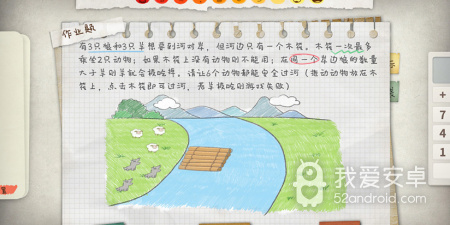 作业题
有3只狼和3只羊想要到河对岸，但河边只有一个木筏，木筏一次最多
乘坐2只动物；如果木筏上没有动物则不能用；在同一个岸边狼的数量
大于羊则羊就会被吃掉，请让6个动物都能安全过河（拖动动物放在木
筏上，点击木筏即可过河，若羊被吃则游戏失败）
+
7
4
1
我爱安卓
52android.com